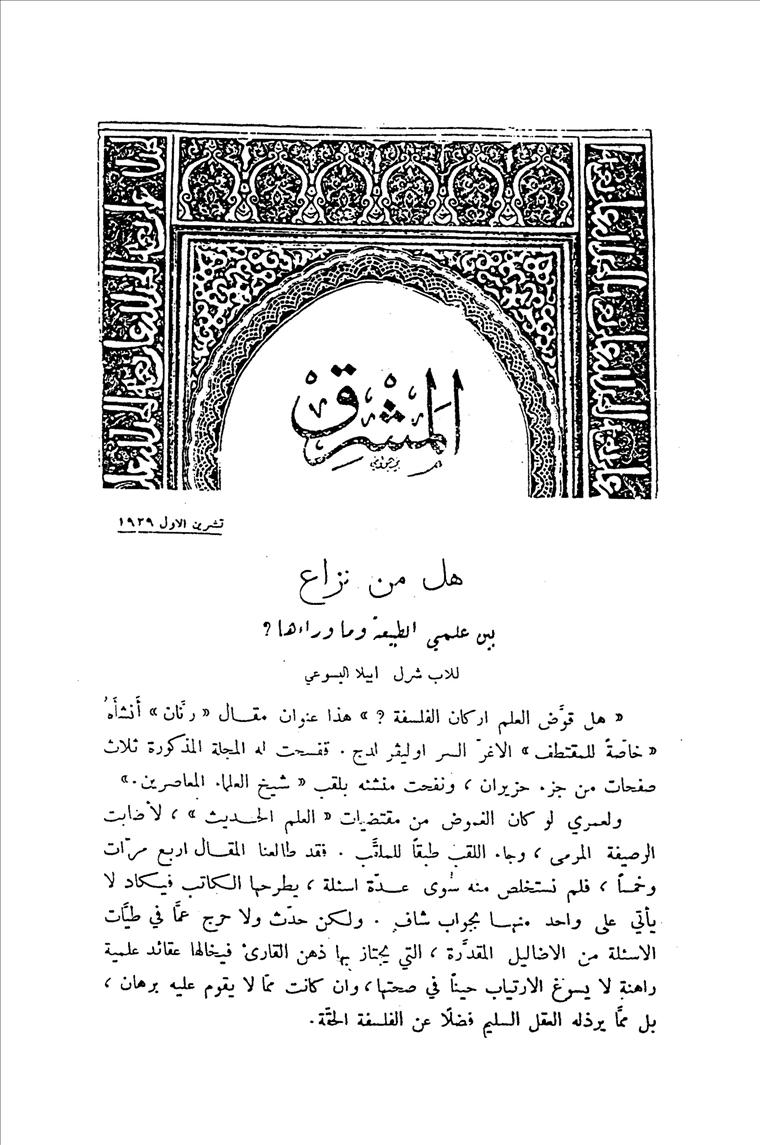 المشرق
تشرين الاول ١٩٢٩
هل من نزاع
بين علمي الطبيعة وما وراءها؟
للاب شرل ابيلا اليسوعي
« هل قوَّض العلم اركان الفلسفة ? » هذا عنوان مقـال « رنَّان » أنشأهُ
« خاصّةً للمقتطف » الاغرّ السر اوليڤر لدج . ففسحت له المجلة المذكورة ثلاث
صفحات من جزء حزيران ، ونفحت منشئه بلقب « شيخ العلماء المعاصرين .»
ولعمري لو كان الغموض من مقتضيات « العلم الحديث » ، لأضابت
الرصيفة المرمى ، وجاء اللقب طبقاً للملقَّب . فقد طالعنا المقـال اربع مرّات
وخمساً ، فلم نستخلص منه سُوى عـدّة اسئلة ، يطرحها الكاتب فيكاد لا
يأتي على واحد منهـا بجواب شافٍ . ولكن حدّث ولا حرج عمَّا في طيَّات
الاسئلة من الاضاليل المقدَّرة ، التي يجتاز بها ذهن القارئ فيخالها عقائد علمية
راهنة لا يسوغ الارتياب حيناً في صحتها ، وان كانت ممّا لا يقوم عليه برهان ،
بل ممَّا يرذله العقل السليم فضلًا عن الفلسفة الحقَّة .